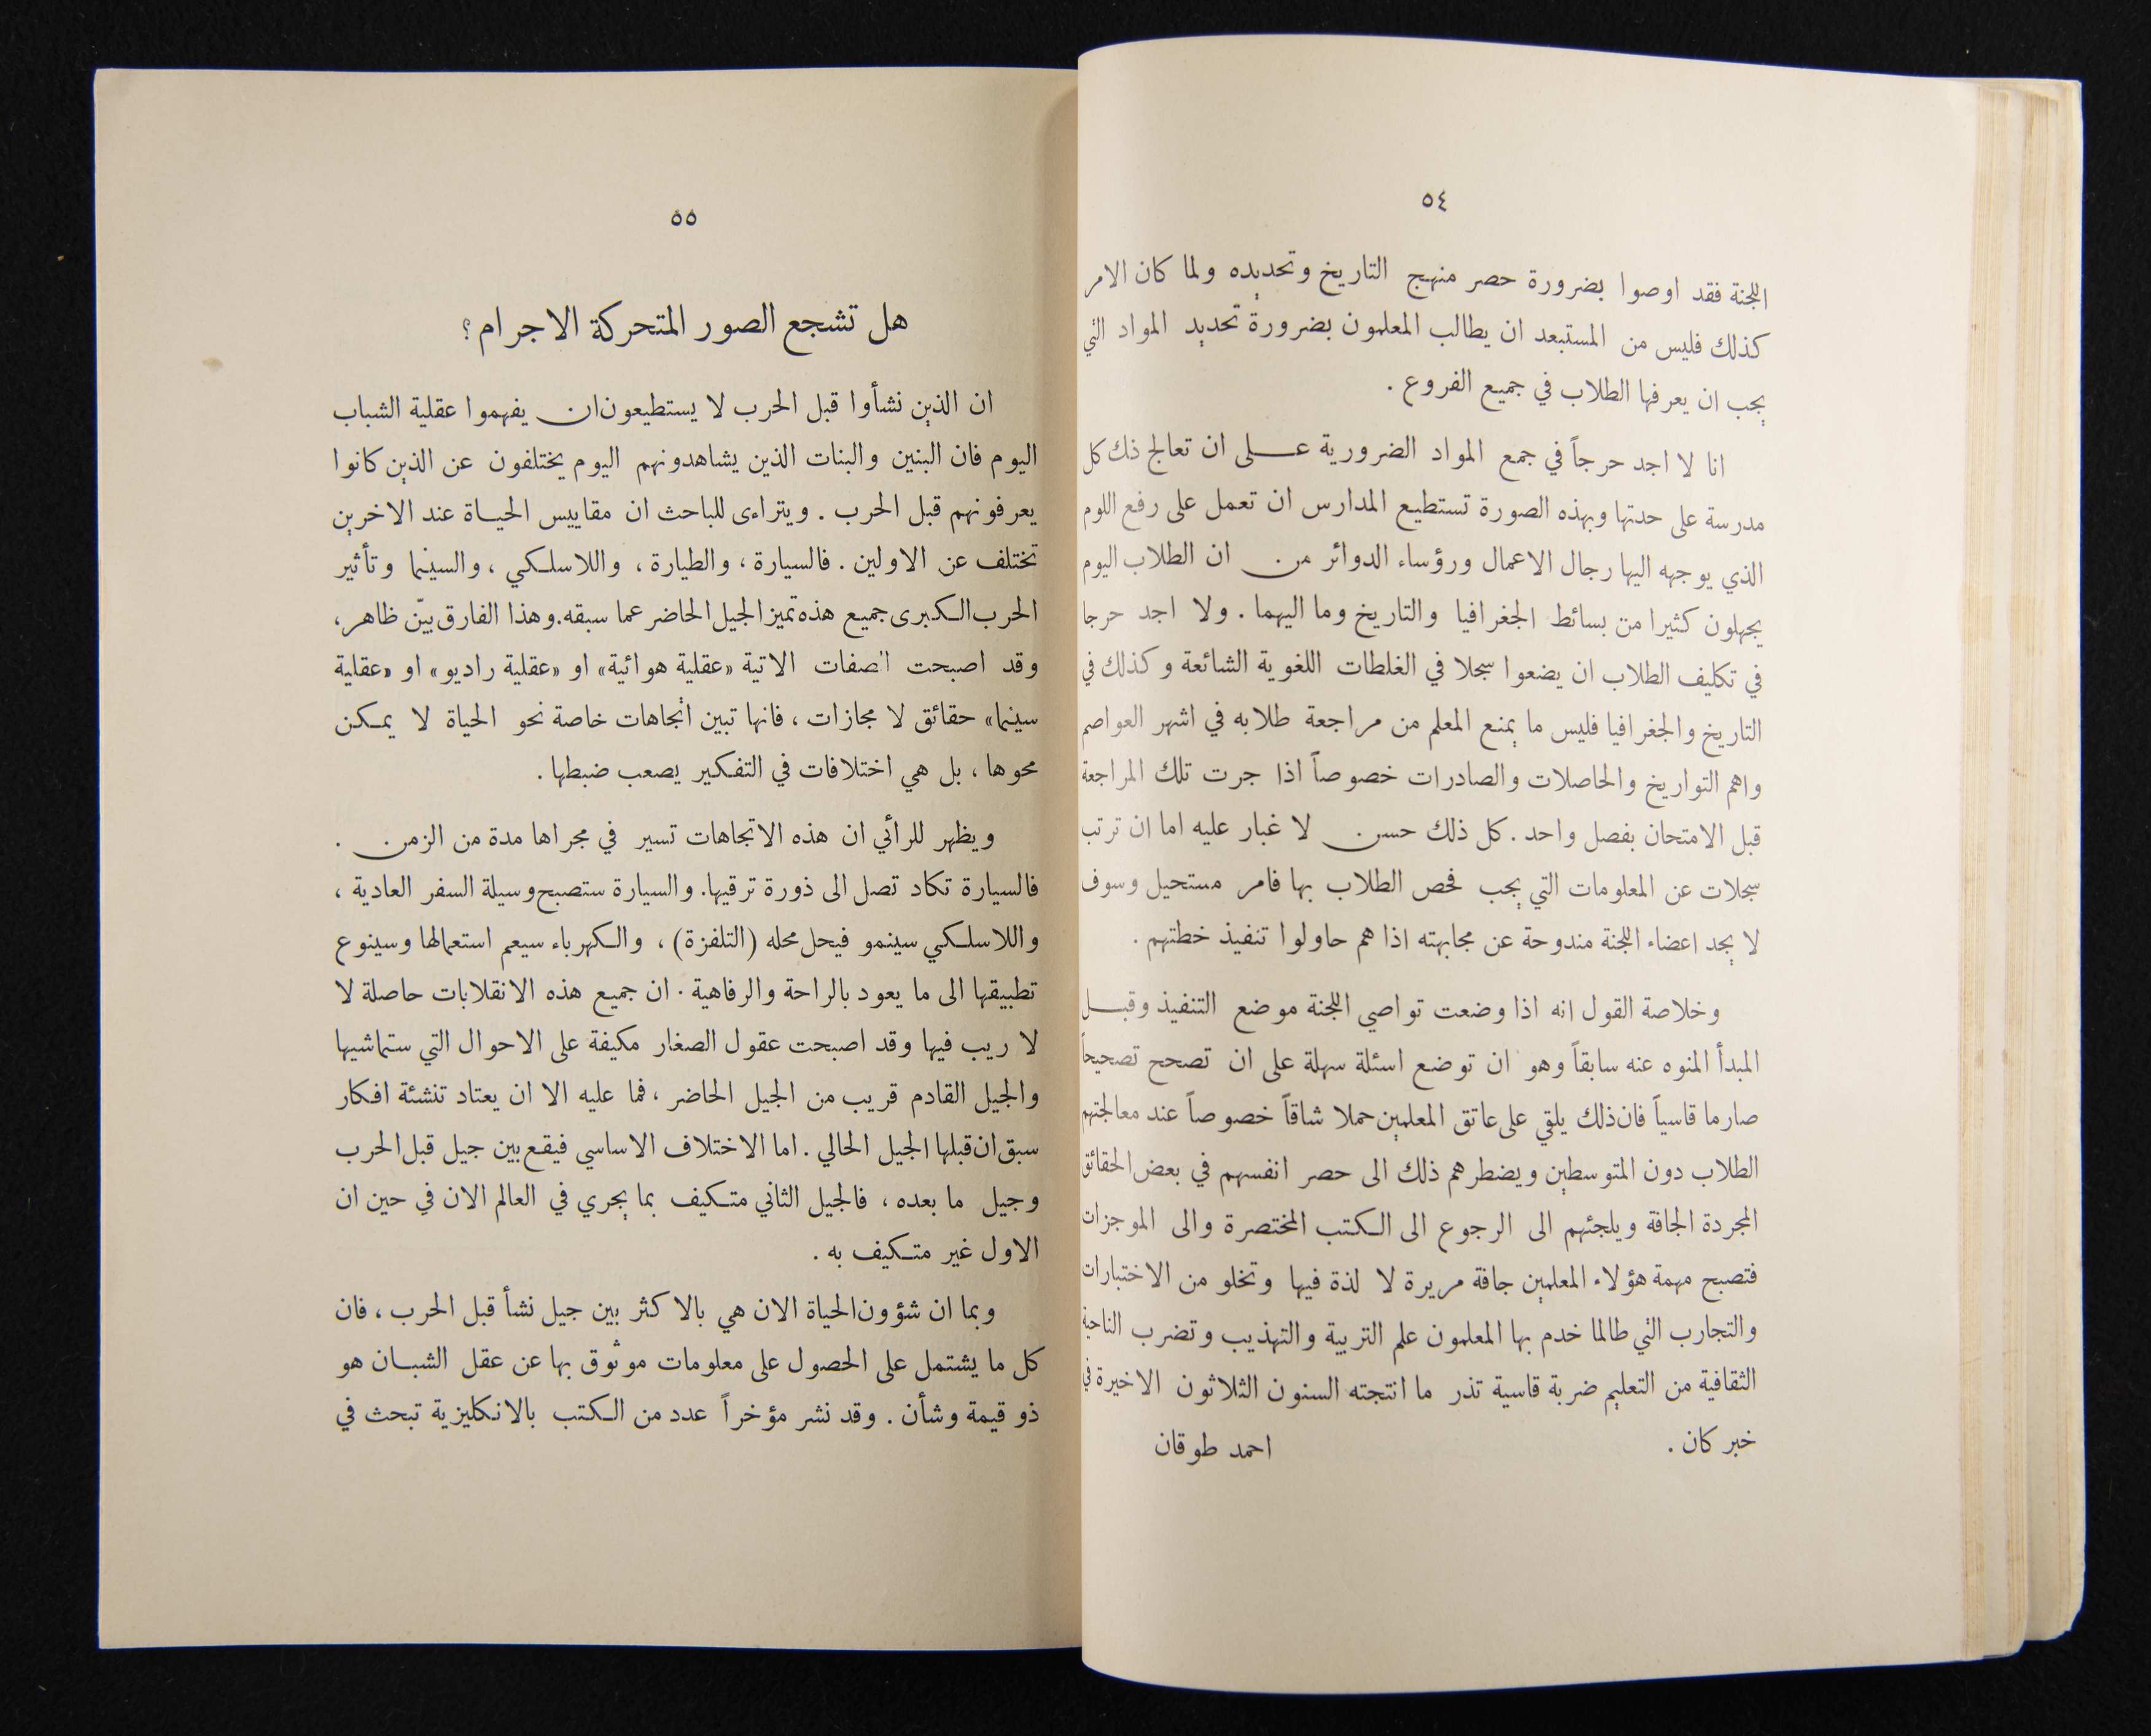 ٥٤
اللجنة فقد اوصوا بضرورة حصر منهج التاريخ وتحديده ولما كان الامر
كذلك فليس من المستبعد ان يطالب المعلمون بضرورة تحديد المواد التي
يجب ان يعرفها الطلاب في جميع الفروع .
انا لا اجد حرجاً في جمع المواد الضرورية عـلى ان تعالج ذك كل
مدرسة على حدتها وبهذه الصورة تستطيع المدارس ان تعمل على رفع اللوم
الذي يوجهه اليها رجال الاعمال ورؤساء الدوائر من ان الطلاب اليوم
يجهلون كثيرا من بسائط الجغرافيا والتاريخ وما اليهما . ولا اجد حرجا
في تكليف الطلاب ان يضعوا سجلا في الغلطات اللغوية الشائعة وكذلك في
التاريخ والجغرافيا فليس ما يمنع المعلم من مراجعة طلابه في اشهر العواصم
واهم التواريخ والحاصلات والصادرات خصوصاً اذا جرت تلك المراجعة
قبل الامتحان بفصل واحد . كل ذلك حسن لا غبار عليه اما ان ترتب
سجلات عن المعلومات التي يجب فحص الطلاب بها فامر مستحيل وسوف
لا يجد اعضاء اللجنة مندوحة عن مجابهته اذا هم حاولوا تنفيذ خطتهم .
وخلاصة القول انه اذا وضعت تواصي اللجنة موضع التنفيذ وقبـل
المبدأ المنوه عنه سابقاً وهو ان توضع اسئلة سهلة على ان تصحح تصحيحاً
صارما قاسياً فان ذلك يلقي على عاتق المعلمين حملا شاقاً خصوصاً عند معالجتهم
الطلاب دون المتوسطين ويضطرهم ذلك الى حصر انفسهم في بعض الحقائق
المجردة الجافة ويلجئهم الى الرجوع الى الكتب المختصرة والى الموجزات
فتصبح مهمة هؤلاء المعلمين جافة مريرة لا لذة فيها وتخلو من الاختبارات
والتجارب التي طالما خدم بها المعلمون علم التربية والتهذيب وتضرب الناحية
الثقافية من التعليم ضربة قاسية تذر ما انتجته السنون الثلاثون الاخيرة في
خبر كان . احمد طوقان
٥٥
هل تشجع الصور المتحركة الاجرام ؟
ان الذين نشأوا قبل الحرب لا يستطيعون ان يفهموا عقلية الشباب
اليوم فان البنين والبنات الذين يشاهدونهم اليوم يختلفون عن الذين كانوا
يعرفونهم قبل الحرب . ويتراءى للباحث ان مقاييس الحيـاة عند الاخرين
تختلف عن الاولين . فالسيارة ، والطيارة ، واللاسلكي ، والسينما وتأثير
الحرب الكبرى جميع هذه تميز الجيل الحاضر عما سبقه. وهذا الفارق بيّن ظاهر،
وقد اصبحت الصفات الاتية «عقلية هوائية» او «عقلية راديو» او «عقلية
سينما» حقائق لا مجازات ، فانها تبين اتجاهات خاصة نحو الحياة لا يمكن
محوها ، بل هي اختلافات في التفكير يصعب ضبطها .
ويظهر للرائي ان هذه الاتجاهات تسير في مجراها مدة من الزمن .
فالسيارة تكاد تصل الى ذورة ترقيها. والسيارة ستصبح وسيلة السفر العادية ،
واللاسلكي سينمو فيحل محله (التلفزة) ، والكهرباء سيعم استعمالها وسينوع
تطبيقها الى ما يعود بالراحة والرفاهية . ان جميع هذه الانقلابات حاصلة لا
لا ريب فيها وقد اصبحت عقول الصغار مكيفة على الاحوال التي ستماشيها
والجيل القادم قريب من الجيل الحاضر ، فما عليه الا ان يعتاد تنشئة افكار
سبق ان قبلها الجيل الحالي . اما الاختلاف الاساسي فيقع بين جيل قبل الحرب
وجيل ما بعده ، فالجيل الثاني متكيف بما يجري في العالم الان في حين ان
الاول غير متكيف به .
وبما ان شؤون الحياة الان هي بالاكثر بين جيل نشأ قبل الحرب ، فان
كل ما يشتمل على الحصول على معلومات موثوق بها عن عقل الشبـان هو
ذو قيمة وشأن . وقد نشر مؤخراً عدد من الكتب بالانكليزية تبحث في